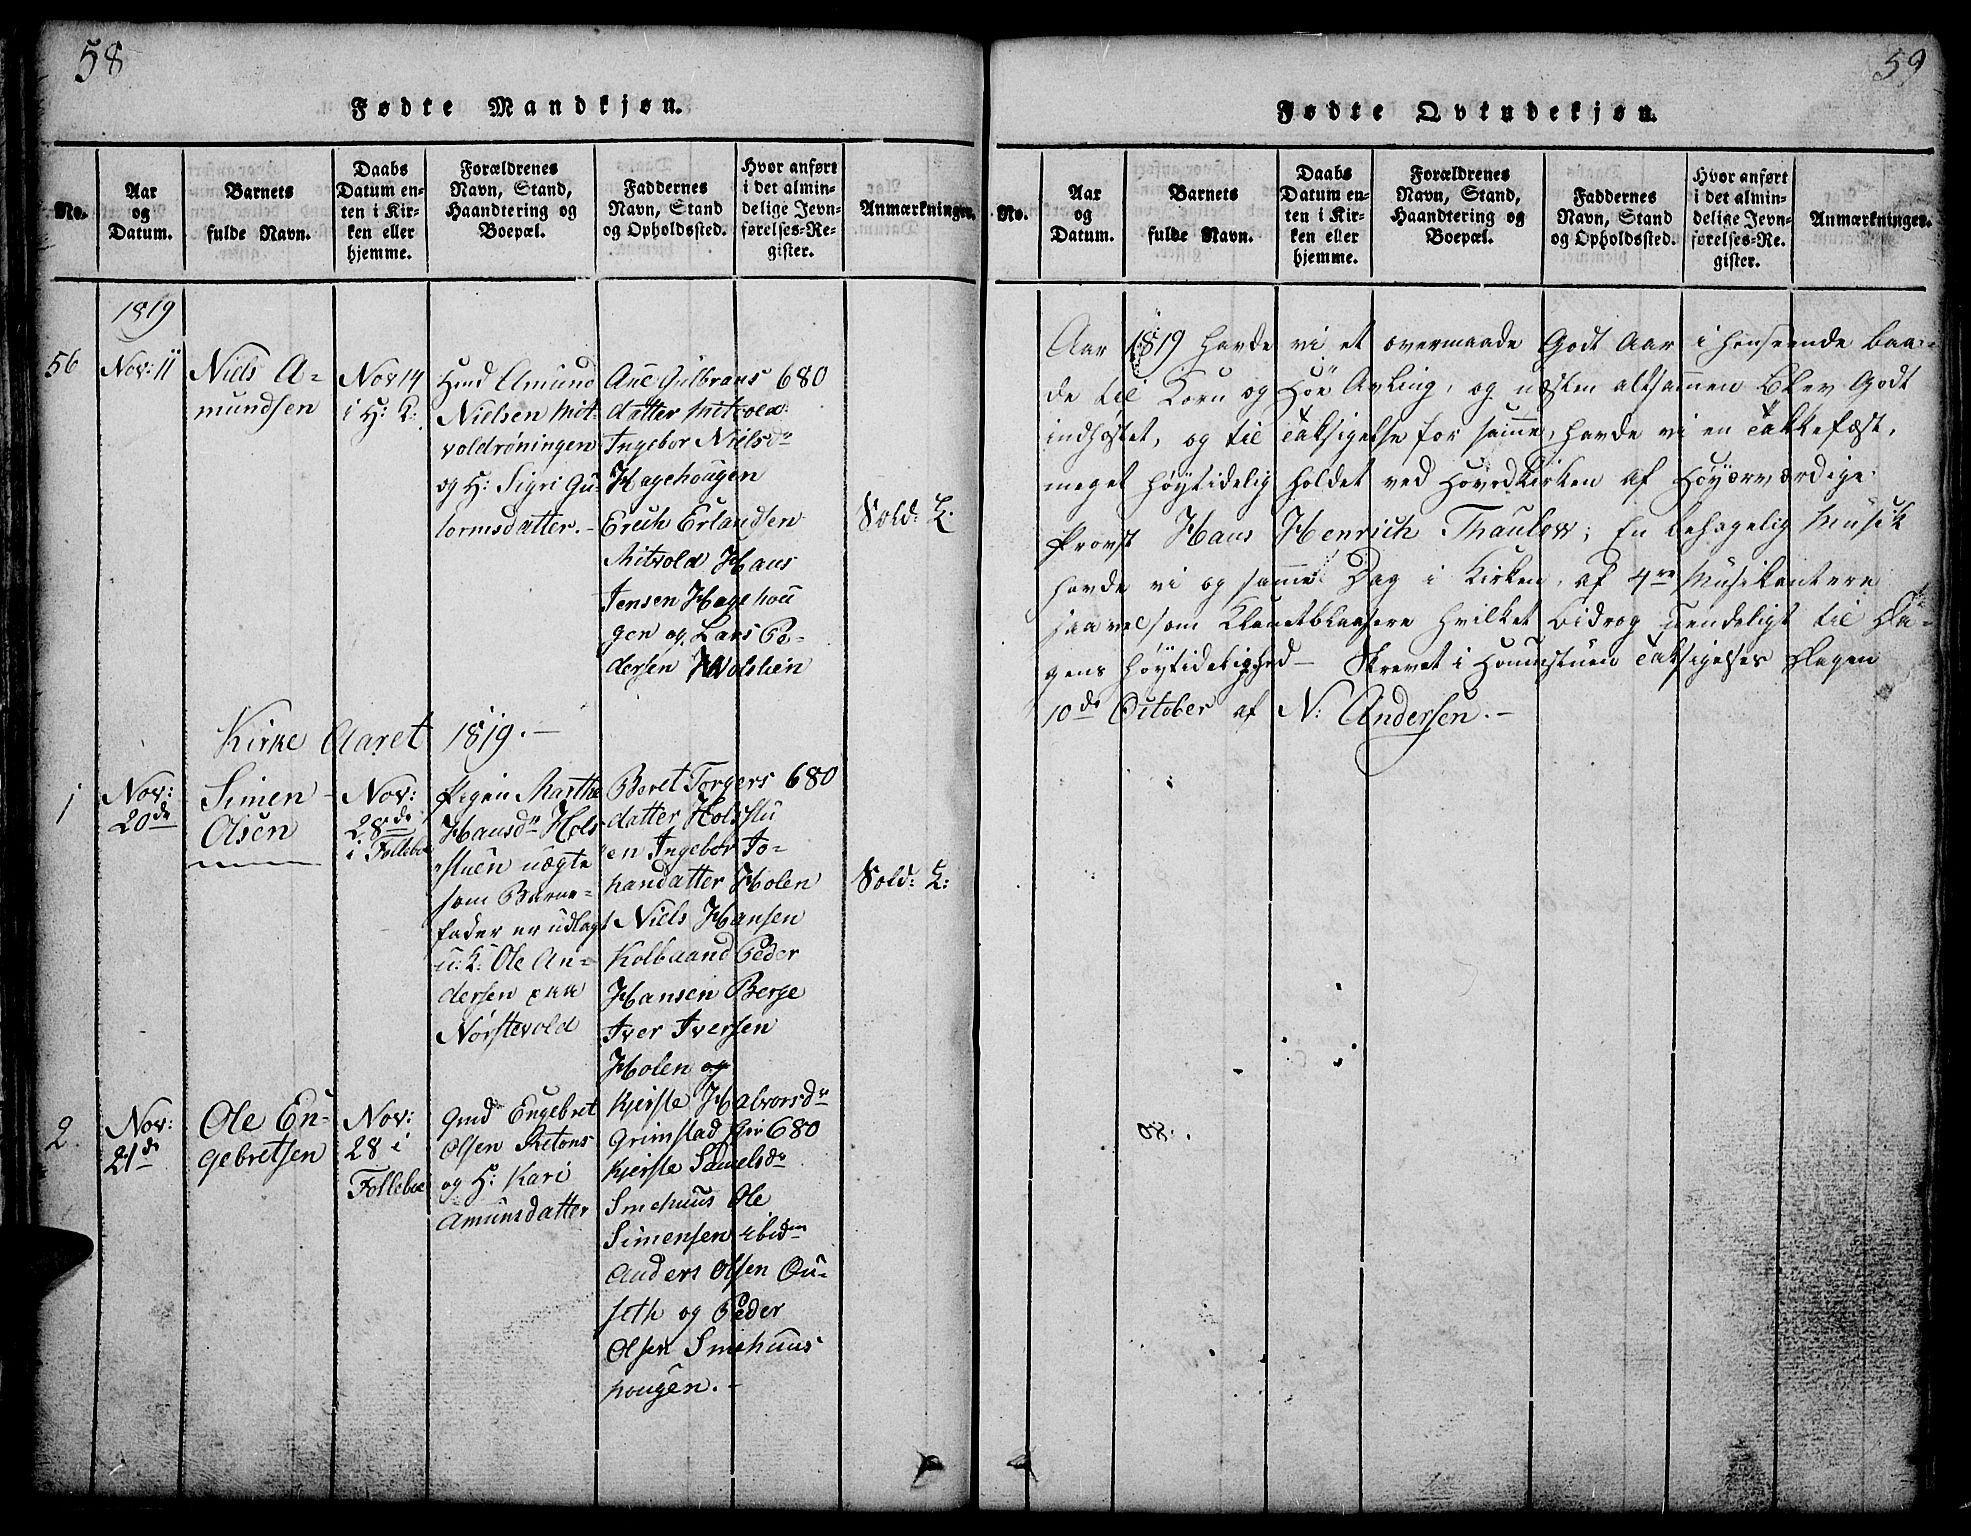 58
Fødte Mandkjøn.
No.
Aar
og
Datum.
Barnets
fulde Navn.
Daabs
Datum en-
ten i Kir-
ken eller
hjemme.
Forældrenes
Navn, Stand,
Haandtering og
Boepæl.
Faddernes
Navn, Stand
og Opholdssted.
Hvor anført
i det almin-
delige Jevn-
førelses-Re-
gister.
Anmærkninger.
1819
56
Nov: 11
Niels A-
mundsen
Nov 14
i H: K:
Hmd Amund
Nielsen Mit
voldrøningen
og H: Sigri Gu
tormsdatter. -
Ane Gulbrans
datter Mitvold
Ingebor Nielsdr
Hagehougen
Erich Erlandsen
Mitvold Hans
Jensen Hagehou
gen og Lars Pe-
dersen Wolslien
680
Vold: K.
Kirke Aaret 1819. -
1
Nov:
20de
Simen
Olsen
Nov:
28de
i Folleboe
Pigen Marthe
Hansdr Hols
stuen uægte
som Barne-
fader er udlagt
u: K: Ole An-
dersen paa
Nørstevold
Beret Torgers
datter Holsstu
en Ingebor Jo-
handatter Holen
Niels Hansen
Kolbaand Peder
Hansen Berge
Iver Iversen
Holen og
680
Vold: K:
2.
Nov:
21de
Ole En-
gebretsen
Nov:
28 i
Folleboe
Gmd Engebret
Olsen
og H: Kari
Amunsdatter
Kjerste Halvorsdr
Grimstad Pir
Kjerste Samelsdr
Smehuus Ole
Simensen ibidm
Anders Olsen Ou-
seth og Peder
Olsen Smehuus
hougen. -
680
59
Fødte Qvindekjøn.
No.
Aar
og
Datum.
Barnets
fulde Navn.
Daabs
Datum en-
ten i Kir-
ken eller
hjemme.
Forældrenes
Navn, Stand,
Haandtering og
Boepæl.
Faddernes
Navn, Stand
og Opholdssted.
Hvor anført
i det almin-
delige Jevn-
førelses-Re-
gister.
Anmærkninger.
Aar 1819 havde vi et overmaade Godt Aar i henseende baa-
de til Korn og Høe Avling, og næsten altsammen Blev Godt
indhøstet, og til Taksigelse for samme, havde vi en Takkefæst,
meget høytidelig holdet ved HovedKirken af Høyærværdige
Provst Hans Henrich Thaulow; En behagelig Musik
havde vi og samme Dag i Kirken, af 4re Musikantere
saavelsom Klanetblaasere hvilket bidrog uendeligt til Da-
gens høytidelighed - Skrevet i Hounstuen Taksigelses Dagen
10de October af N: Andersen. -